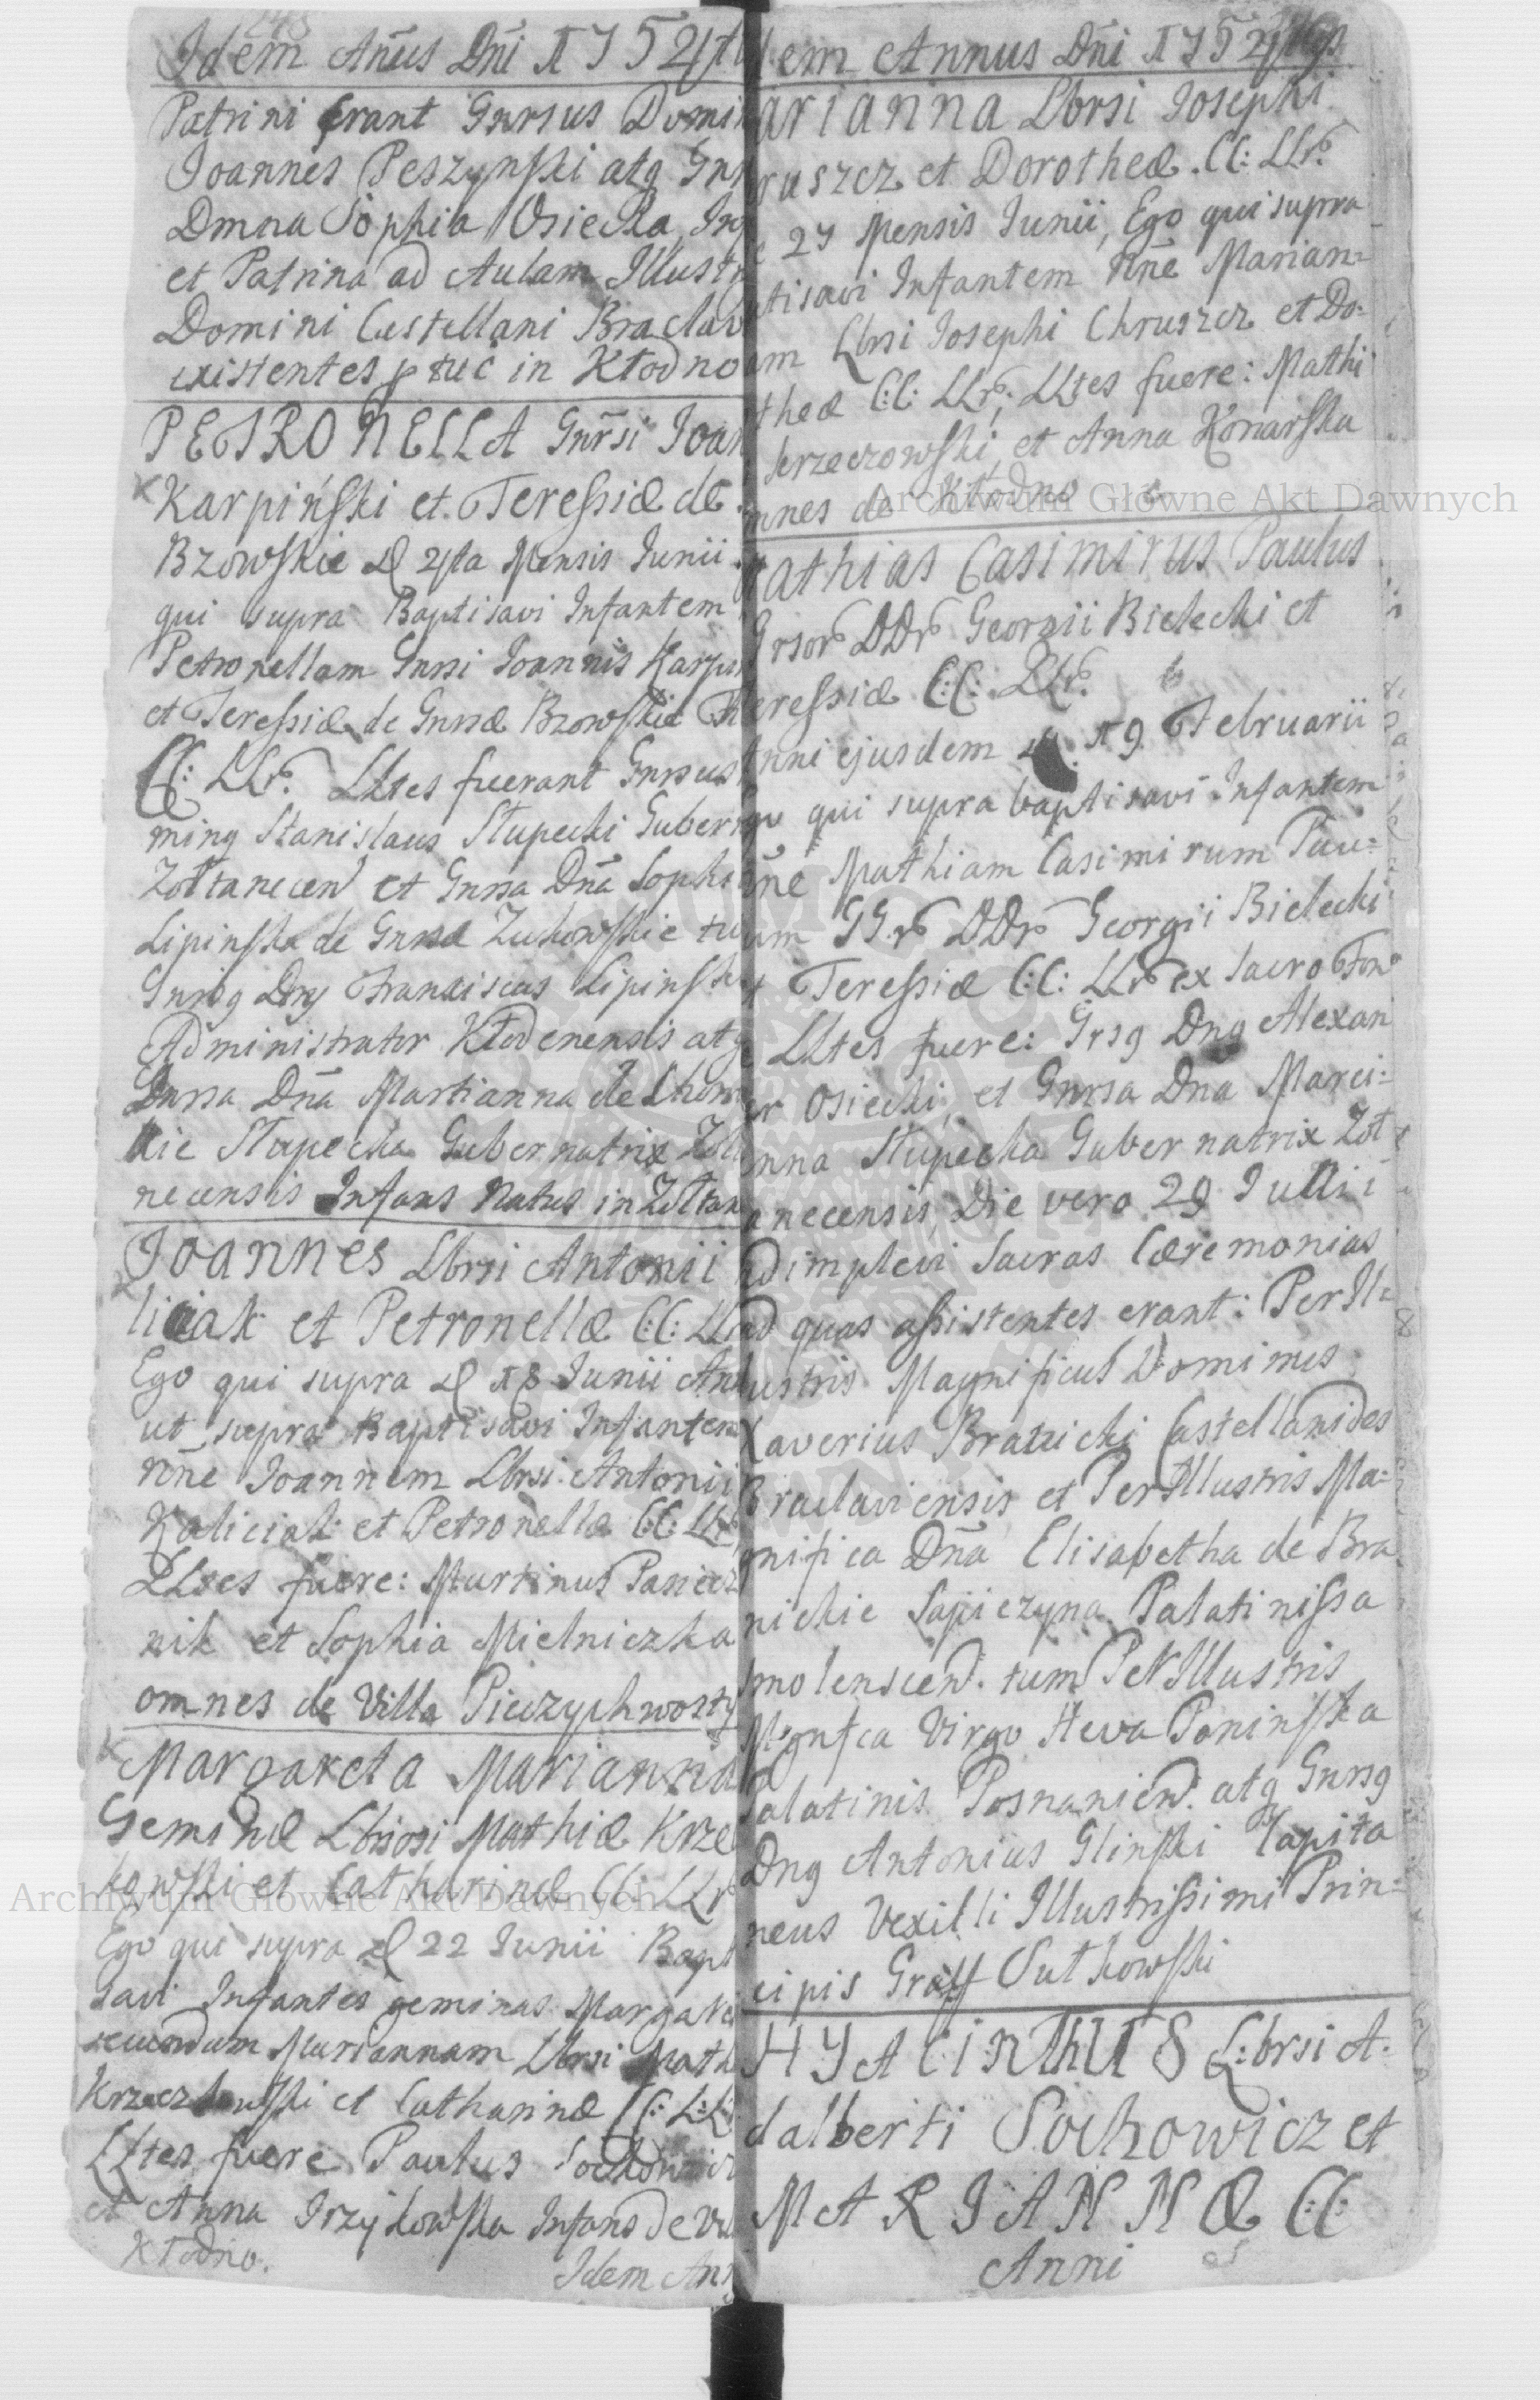 Idem Anūs Dñi 1754to
Patrini erant Gnrsus Domi
Joannes Peszynski atq Gnr
Dmna Sophia Osiecka,
et Patrina ad Aulam Illustr
Domini Castellani Braclav
existentes p tuc in Kłodno
PETRONELLA Gnrsi Joan
Karpiński et Teressiæ de
Bzowskie D 4ta Mensis Junii
qui supra Baptisavi Infantem
Petronellam Gnrsi Joannis Karpin
et Teressiæ de Gnrsæ Bzowskie
CC: LLr. LLtes fuerant Gnrsus
minq Stanislaus Słupecki Guber
Zołtanecen et Gnrsa Dña Soph
Lipinska de Gnrsæ Zukowskie tu
Gnrsq Dnq Franciscus Lipinsk
Administrator Kłodenensis atq
Gnrsa Dña Martianna de Chom
kie Słupecka Gubernatrix Zoł
necensis Infans Natus in Zołtan
Joannes Lbrsi Antonii
liciak et Petronellæ C:C: LL
Ego qui supra D 18 Junii An
ut supra Baptisavi Infantem
nñe Joannem Lbrsi Antonii
Kaliciak et Petronellæ C:C: LLr
LLtes fuere: Martinus Pasiecz
nik et Sophia Mielniczka
omnes de Villa Pieczychwosty
Margareta Marianna
Geminæ Lbrsi Mathiæ Krze
kowski et Catharinæ CC: LLr
Ego qui supra D 22 Junii Bapt
savi Infantes geminas Margare
secundum Mariannam Lbrsi Math
Krzeczkowski et Catharinæ C: L:L
LLtes fuere Paulus Sochowicz
et Anna Irzykowska Infans de Vil
Kłodno.
Idem Ann
dem Annus Dñi 1754tus
arianna Lbrsi Josephi
ruszcz et Dorotheæ . CC: LLr.
27 Mensis Junii, Ego qui supra
tisavi Infantem nñe Marian=
am Lbrsi Josephi Chruszcz et Do=
theæ C:C: LLr; LLtes fuere: Mathi
krzeczowski, et Anna Konarska
mnes de Kłodno
athias Casimirus Paulus
Grsor DDr Georgii Bielecki et
eressiæ C:C: LLr.
Anni ejusdem D. 19 Februarii
qui supra baptisavi Infantem
nñe Mathiam Casimirum Pau=
um GGr DDr Georgii Bielecki
Teressiæ C:C: LLr ex Sacro Fon
LLtes fuere: Grsq Dnq Alexan
er Osiecki, et Gnrsa Dña Marci=
nna Słupecka Gubernatrix Zoł
anecensis, Die vero 29 Julii
adimplevi Sacras Cæremonias
ad quas assistentes erant: PerIl=
ustris Magnificus Dominus
Xaverius Branicki Castellanides
Braclaviensis et PerIllustris Ma=
gnifica Dña Elisabetha de Bra
nickie Sapieżyna Palatinissa
Smolenscen. tum PerIllustris
Mgnfca Virgo Heva Poninska
Palatinis Posnanien. atq Gnrsq
Dnq Antonius Glinski Capita
neus Vexilli Illustrissimi Prin=
cipis Graff Sułkowski
HYACINTHUS L:brsi A.
dalberti Sochowicz et
MARIANNÆ CC
Anni
Archiwum Główne Akt Dawnych
Archiwum Główne Akt Dawnych